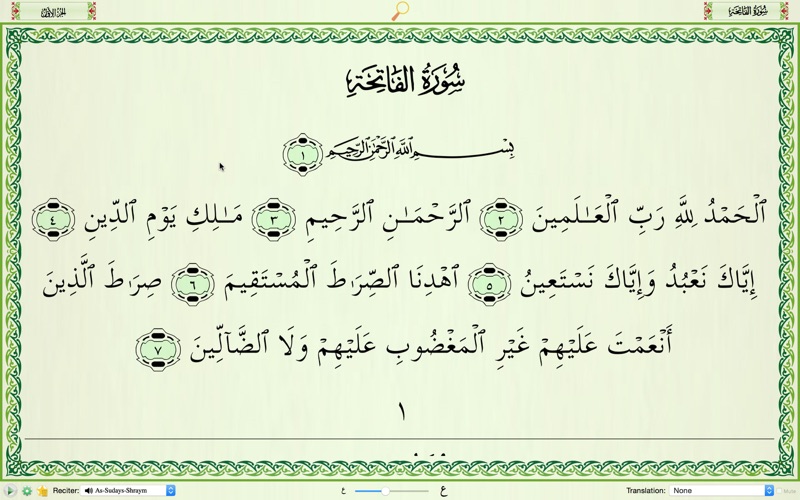 الجزء الأول
سورة الفاتحة
سُورَةُ الفَاتِحَةِ
بِسْمِ اللَّهِ الرَّحْمَٰنِ الرَّحِيمِ ١
ٱلْحَمْدُ لِلَّهِ رَبِّ ٱلْعَـٰلَمِينَ ٢ ٱلرَّحْمَـٰنِ ٱلرَّحِيمِ ٣ مَـٰلِكِ يَوْمِ ٱلدِّينِ ٤
إِيَّاكَ نَعْبُدُ وَإِيَّاكَ نَسْتَعِينُ ٥ ٱهْدِنَا ٱلصِّرَٰطَ ٱلْمُسْتَقِيمَ ٦ صِرَٰطَ ٱلَّذِينَ
أَنْعَمْتَ عَلَيْهِمْ غَيْرِ ٱلْمَغْضُوبِ عَلَيْهِمْ وَلَا ٱلضَّآلِّينَ ٧
١
Reciter: As-Sudays-Shraym ع ع Translation: None Mute